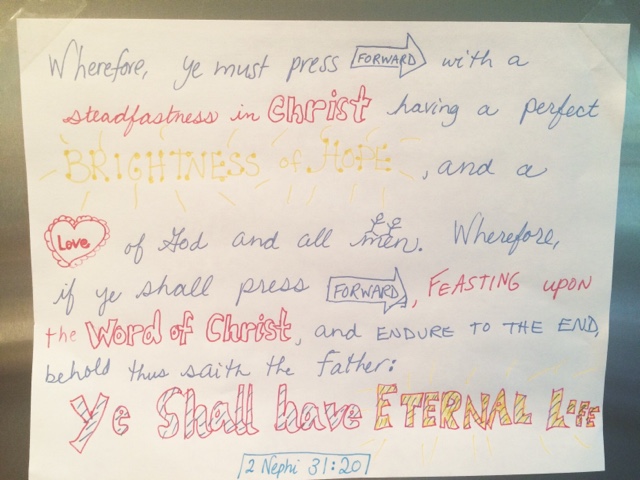 Wherefore, ye must press FORWARD with a
steadfastness in Christ having a perfect
BRIGHTNESS of HOPE, and a
Love of God and all men. Wherefore,
if ye shall press FORWARD, FEASTING UPON
the Word of Christ, and ENDURE TO THE END,
behold thus saith the Father:
Ye Shall have ETERNAL LIFE
2 Nephi 31:20